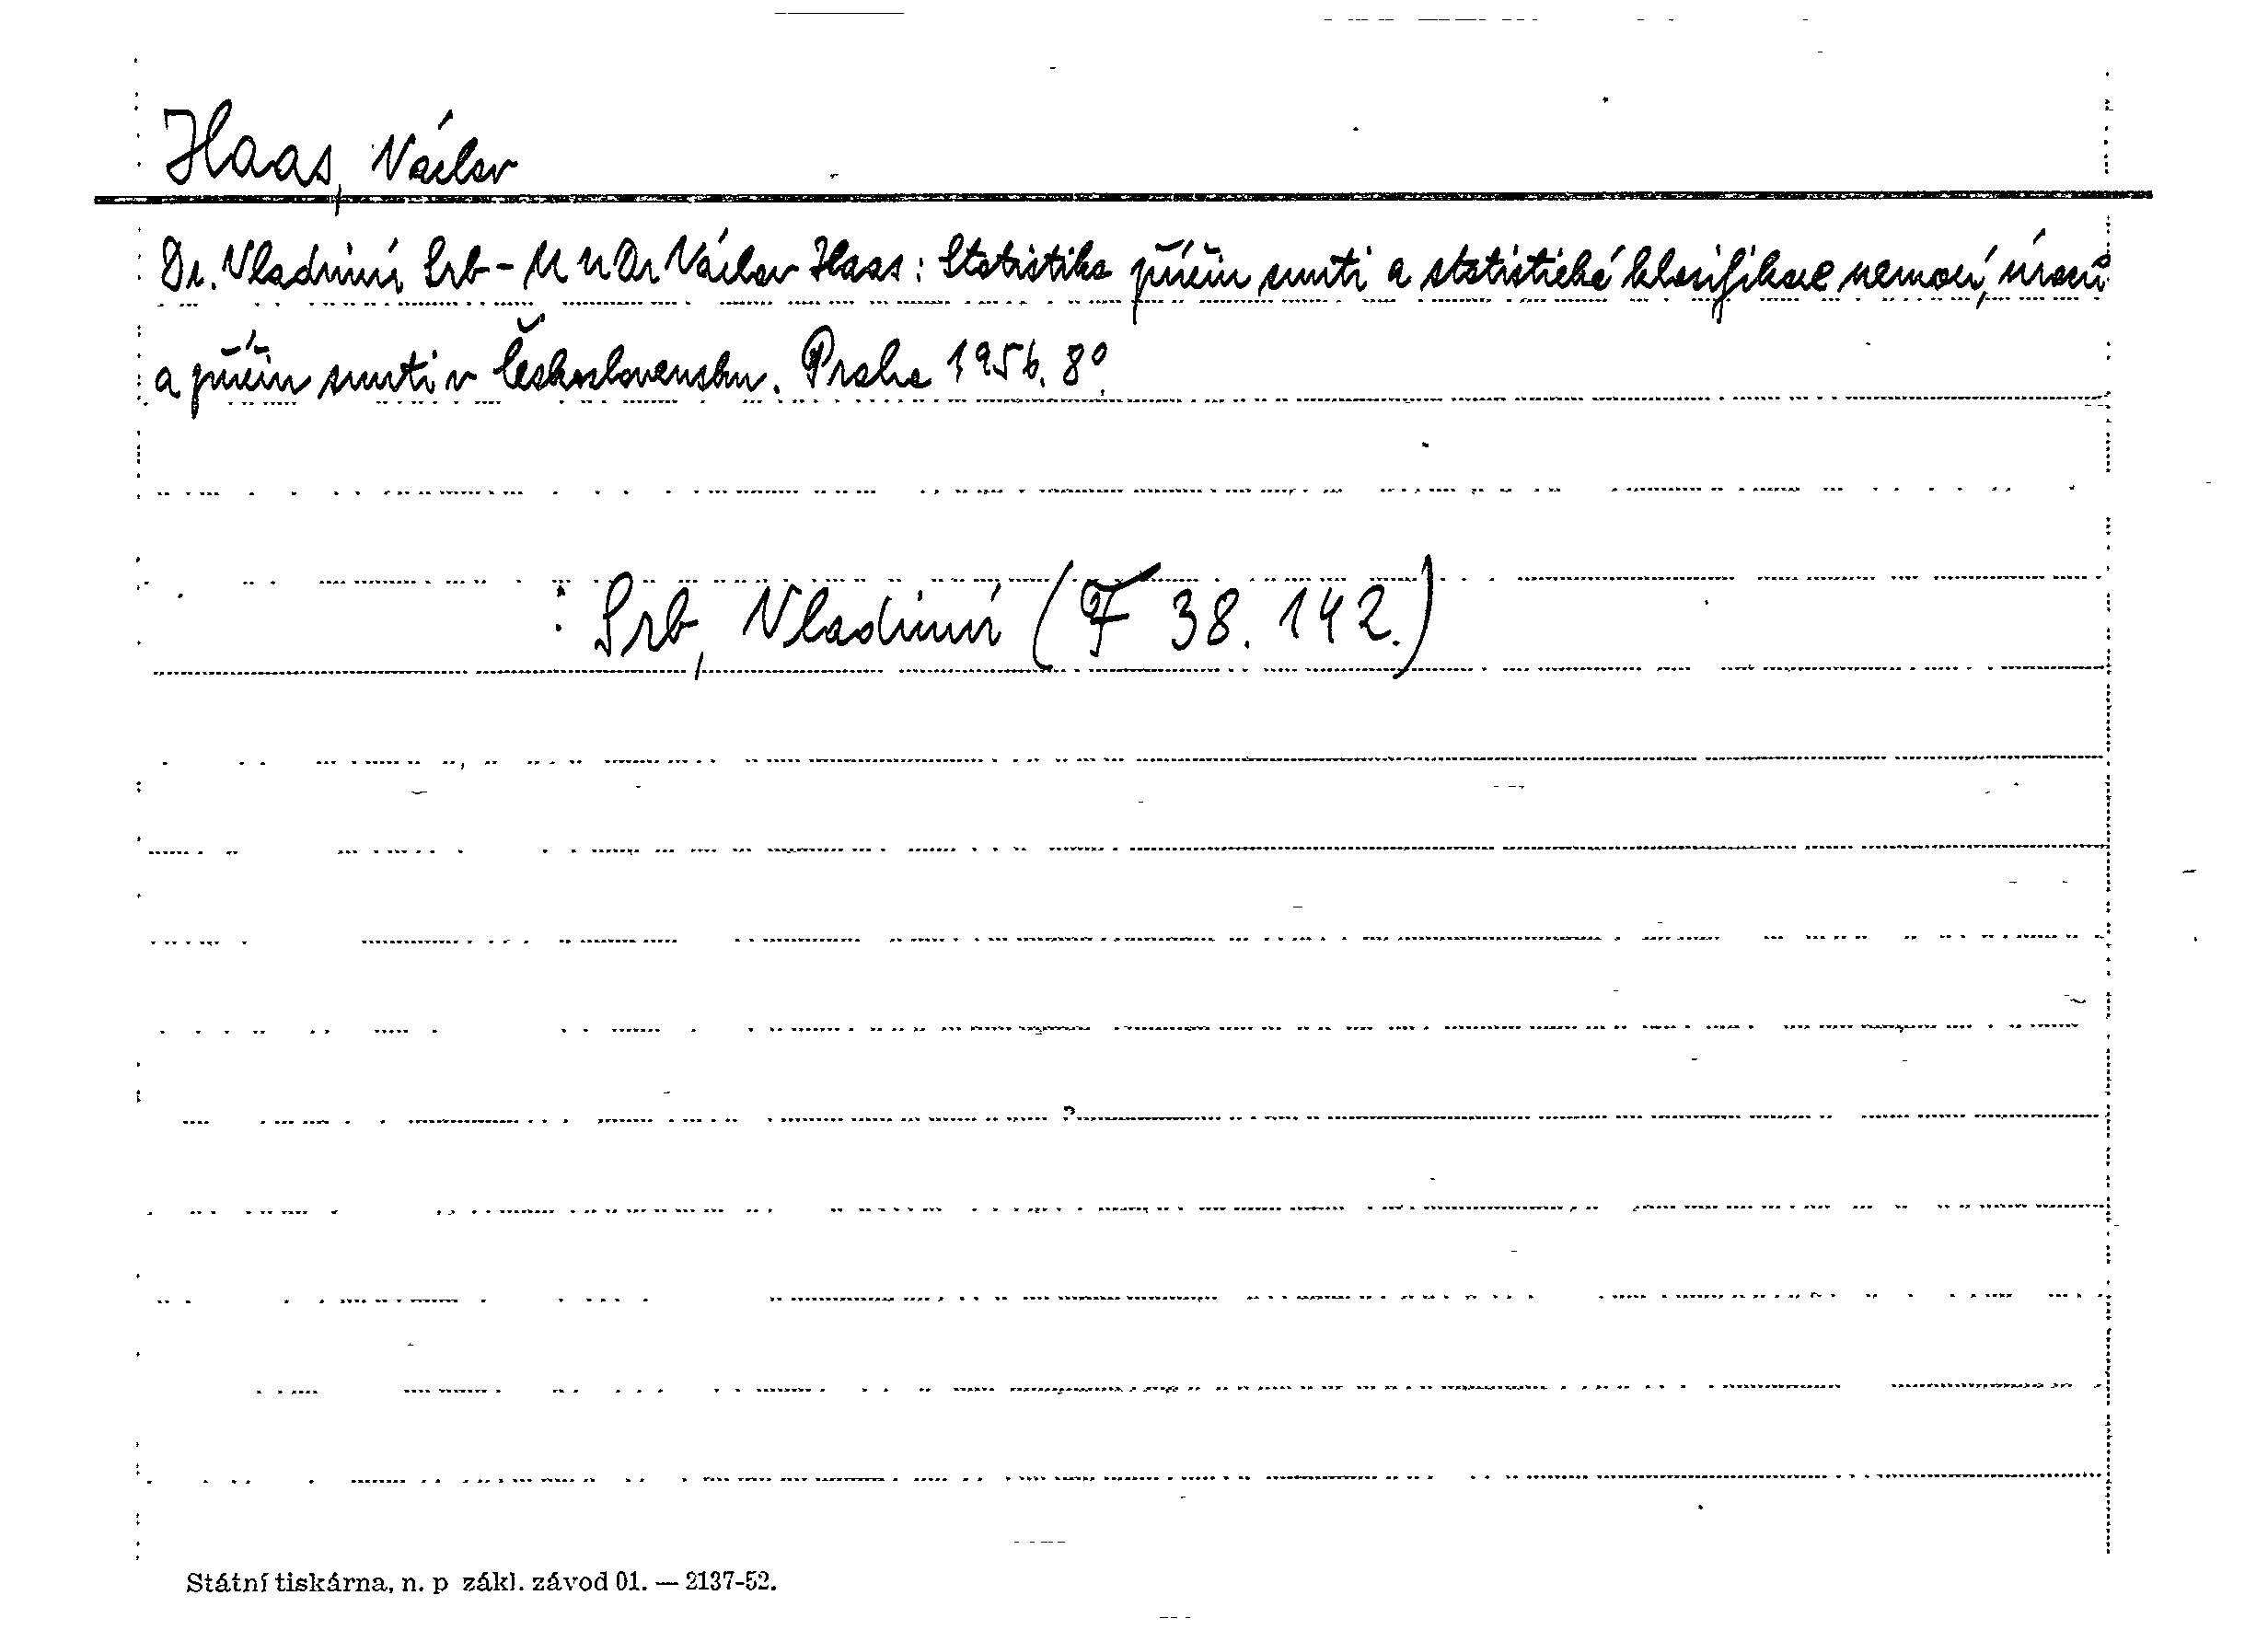 Haas, Václav
Dr. Vladimír Srb - MUDr Václav Haas: Statistika příčin smrti a statistické klasifikace nemocí, úrazů
a příčin smrti v Československu. Praha 1956. 8º.
: Srb, Vladimír (F 38.142.)
Státní tiskárna, n. p zákl. závod 01. — 2137-52.